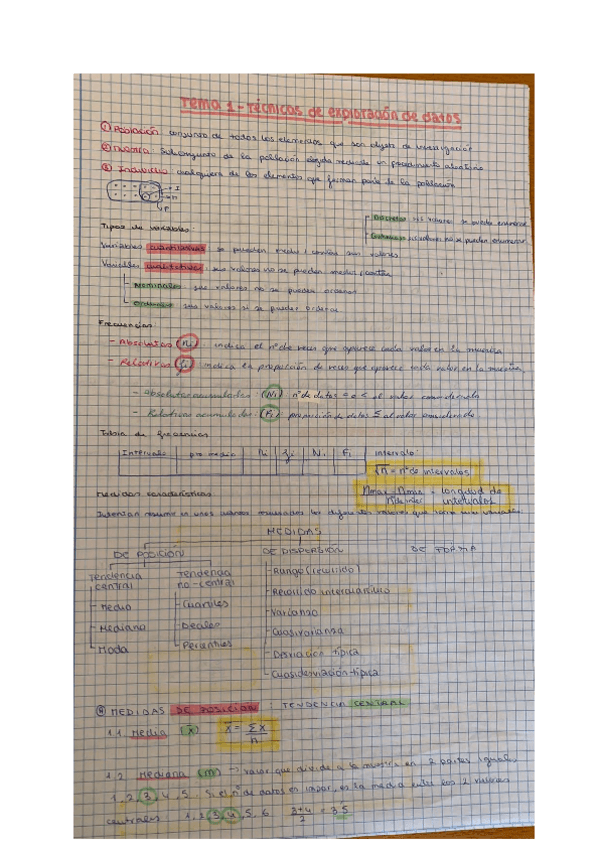 Tema 1 - Técnicas de exploración de datos
① Población: conjunto de todos los elementos que son objeto de investigación
② Muestra: Subconjunto de la población elegido mediante un procedimiento aleatorio
③ Individuo: cualquiera de los elementos que forman parte de la población
I
m
P
Tipos de variables:
Discretas: si los valores se pueden enumerar
Continuas: si los valores no se pueden enumerar
Variables cuantitativas: se pueden medir / contar sus valores
Variables cualitativas: sus valores no se pueden medir / contar
Nominales: sus valores no se pueden ordenar
Ordinales: sus valores si se pueden ordenar
Frecuencias:
- Absolutas (ni) indica el nº de veces que aparece cada valor en la muestra
- Relativas (fi) indica la proporción de veces que aparece cada valor en la muestra
- Absolutas acumuladas: (Ni) nº de datos = o < al valor considerado
- Relativas acumuladas: (Fi) proporción de datos ≤ al valor considerado.
Tabla de frecuencias
Intervalo pto medio ni fi Ni Fi
intervalo:
√n = nº de intervalos
nmax - nmin = longitud de
nº de inter intervalos
Medidas características:
Intentan resumir en unos valores los diferentes valores que toma una variable
MEDIDAS
DE POSICIÓN DE DISPERSIÓN DE FORMA
Tendencia central
Tendencia no-central
- Media
- Mediana
- Moda
- Cuartiles
- Deciles
- Percentiles
- Rango (recorrido)
- Recorrido intercuartílico
- Varianza
- Cuasivarianza
- Desviación típica
- Cuasidesviación típica
MEDIDAS DE POSICIÓN: TENDENCIA CENTRAL
1.1. Media (x̄) x̄ = Σx / n
1.2 Mediana (m) → valor que divide a la muestra en 2 partes iguales
1, 2, 3, 4, 5 Si el nº de datos es impar, es la media entre los 2 valores
centrales 1, 2, 3, 4, 5, 6 3+4 / 2 = 3'5